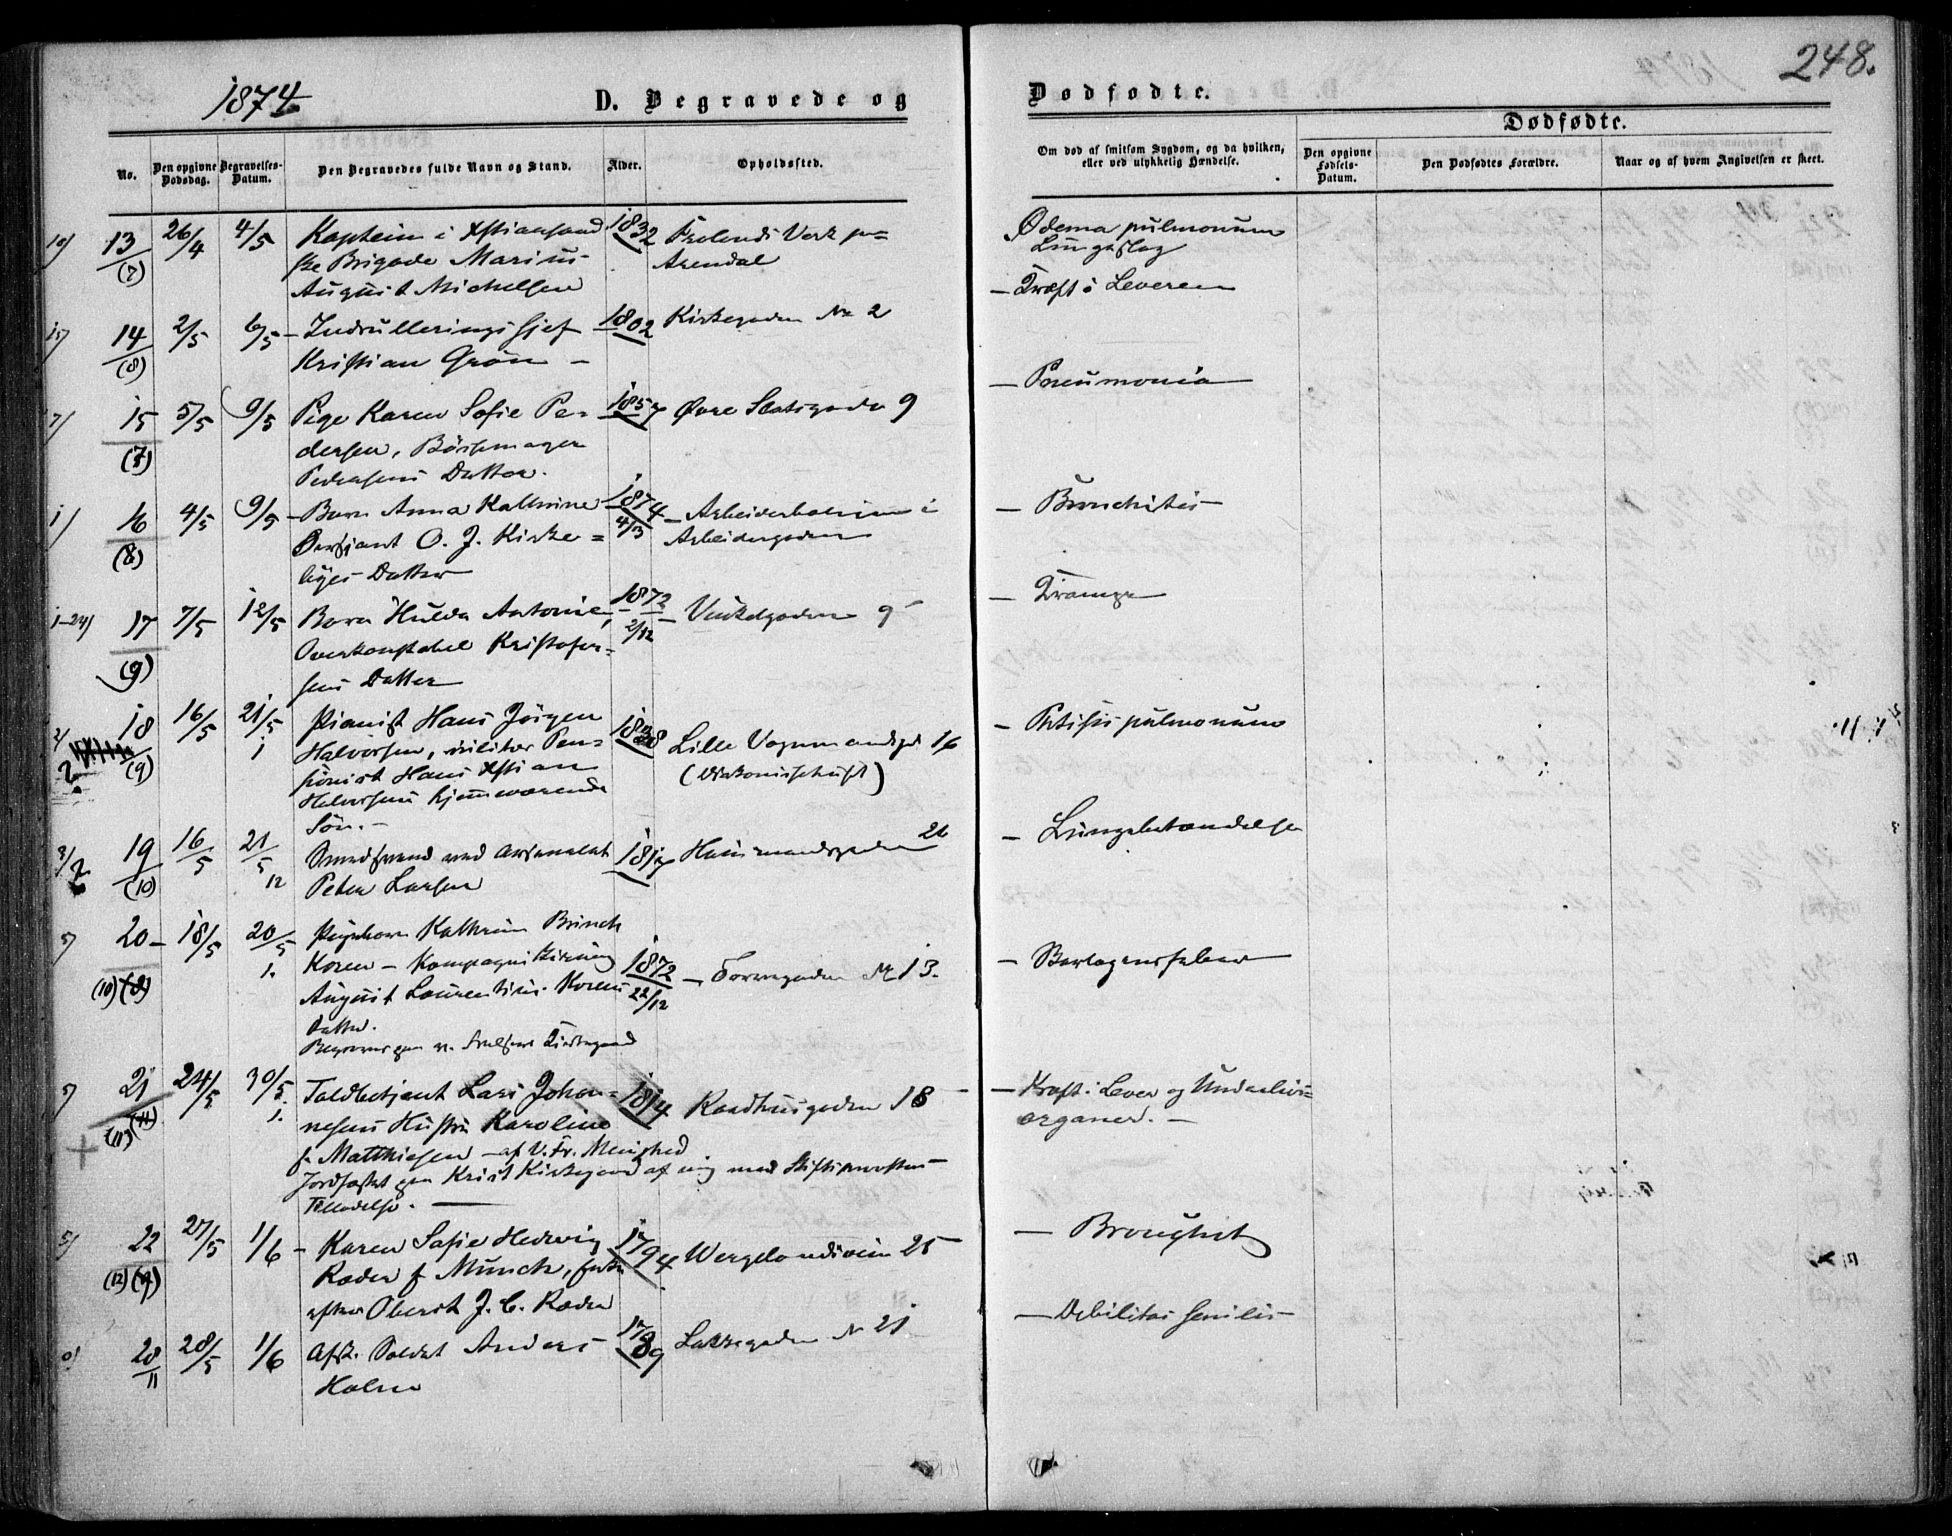 1874
D. Begravede og
Dødfødte.
248.
Dødfødte.
No.
Den opgivne Dødsdag.
Begravelses-Datum.
Den Begravedes fulde Navn og Stand.
Alder.
Opholdssted.
Om død af smitsom Sygdom, og da hvilken,
eller ved ulykkelig Hændelse.
Den opgivne Fødsels-Datum.
Den Dødfødtes Forældre.
Naar og af hvem Angivelsen er skeet.
13 26/4 4/5 Kaptein i Xstiansand 1832 Frolands Verk pr
(7) ske Brigade Marius Arendal
August Michelsen
Ødema pulmonum
Lungeslag
14 2/5 6/5 - Indrulleringschef 1802 Kirkegaden No 2
(8) Kristian Grøn -
- Kræft i Leveren
15 5/5 9/5 Pige Karen Sofie Pe- 1857 Øvre Slotsgade 9
dersen, Børsemager
Pedersens Datter.
- Pneumonia
16 4/5 9/5 - Barn Anna Kathrine 1874 - Arbeiderboligerne i
(8) Sersjant O. J. Kirke= 4/3 Arbeidergaden
byes Datter
- Bronchitis
17 7/5 12/5 Barn Hulda Antonie, 1872 - Vinkelgaden 9
(9) Overkonstabel Kristofer- 2/12
sens Datter
- Krampe
18 16/5 21/5 Pianist Hans Jörgen
(9) Halvorsen, militær Pen= Lille Vognmandsgd 16
sionist Hans Xstian (Diakonissehuset)
Halvorsens hjemmeværende
Søn. -
- Ptisis pulmonum
19 16/5 21/5 Smedsvend ved Arsenalet 1817 Hausmandsgaden 26
(10) 12 Peter Larsen
- Lungebetændelse
20 - 18/5 20/5 Pigebarn Kathrine Brinch
(10) 1. Koren - Kompagnikirurg 1872 - Torvegaden No 13.
August Laurentius Korens 22/12
Datter.
Begraves paa v. Frelsers Kirkegaard
21 24/5 30/5 Toldbetjent Lars Johan= 1814 Raadhusgaden 18
(11) 1. nesens Hustru Karoline
f. Matthiesen - af V. Fr. Menighed
Jordfæstet paa Krist Kirkegaard af mig med Stiftsprovstens
Tilladelse. -
- Kræft i Lever og Underlivs=
organer. -
22 27/5 1/6 - Karen Sofie Hedevig 1794 Wergelandsveien 25
(12) Ræder f. Munch, Enke
efter Oberst J. C. Ræder
- Bronchit
28/5 1/6 Afsk. Soldat Anders 1789 Lakkegaden No 21
11 Holm
- Debilitas senilis -